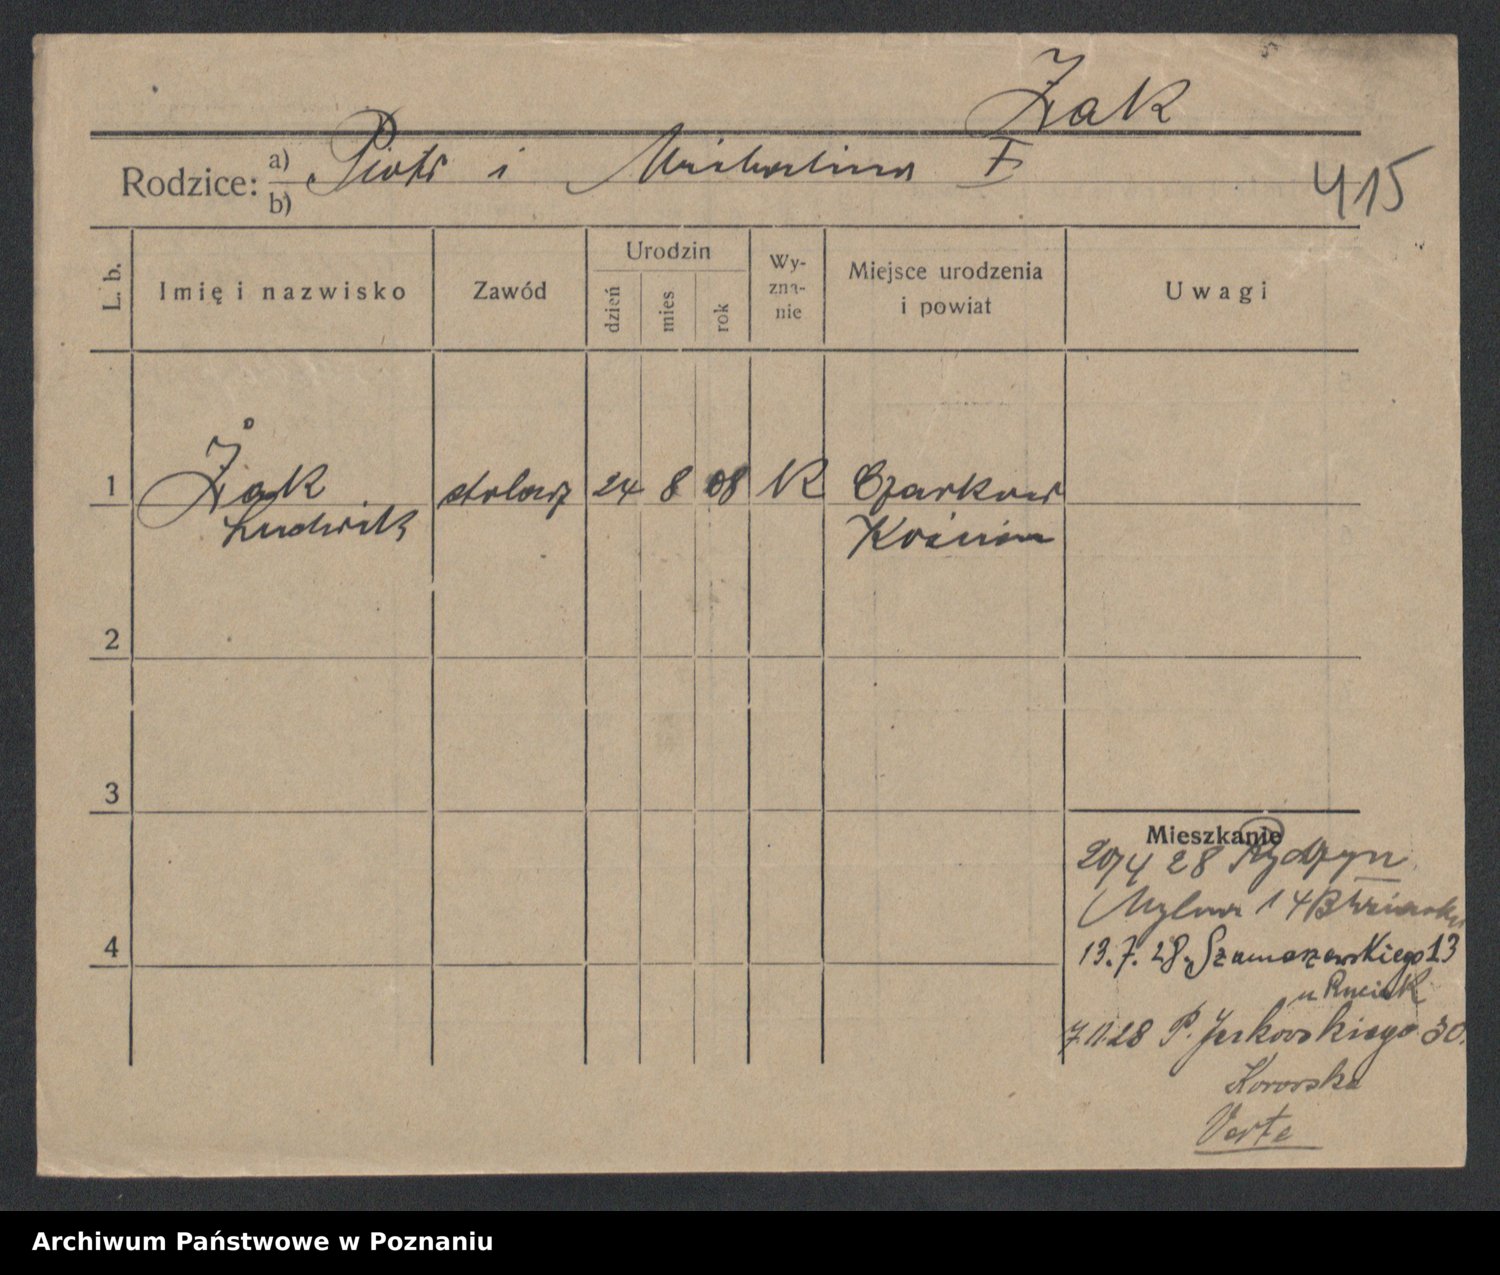 Żak
Rodzice: a) Piotr i Michalina F
b)
415
L. b. Imię i nazwisko Zawód Urodzin dzień mies rok Wy-zna-nie Miejsce urodzenia i powiat Uwagi
1 Żak stolarz 24 8 08 K Czarkow
Ludwik Kościan
2
3
Mieszkanie
20/4 28 Rydzyn
Mylna 14
4
13.7.28. Szamarzewskiego 13
u
7.11.28 P. Jerkowskiego 30.
Verte
Archiwum Państwowe w Poznaniu